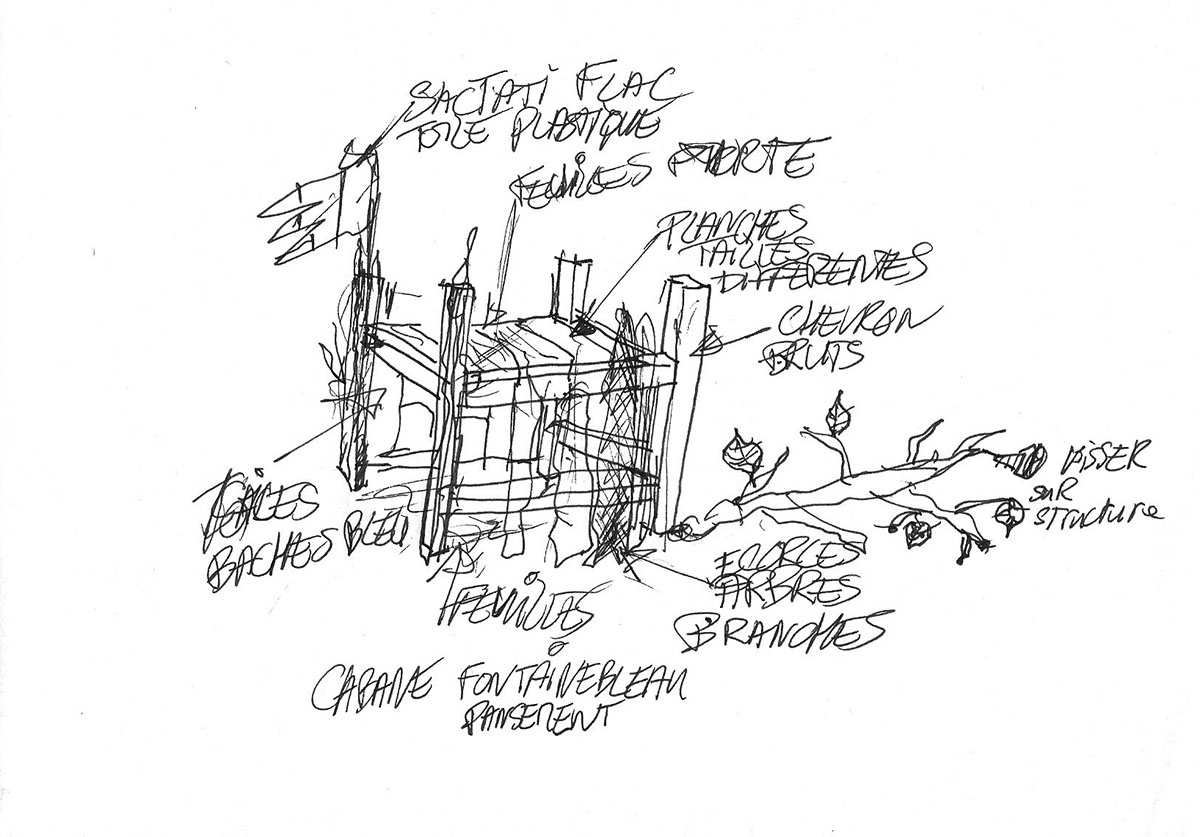 SACTATI FLAC
TOILE PLASTIQUE
FEUILLES
PLANCHES
TAILLES
DIFFERENTES
CHEVRON
BRUTS
VISSER
SUR
STRUCTURE
TOILES
BACHES BLEU
FEUILLES
ECORCES
ARBRES
BRANCHES
CABANE FONTAINEBLEAU
PANSEMENT